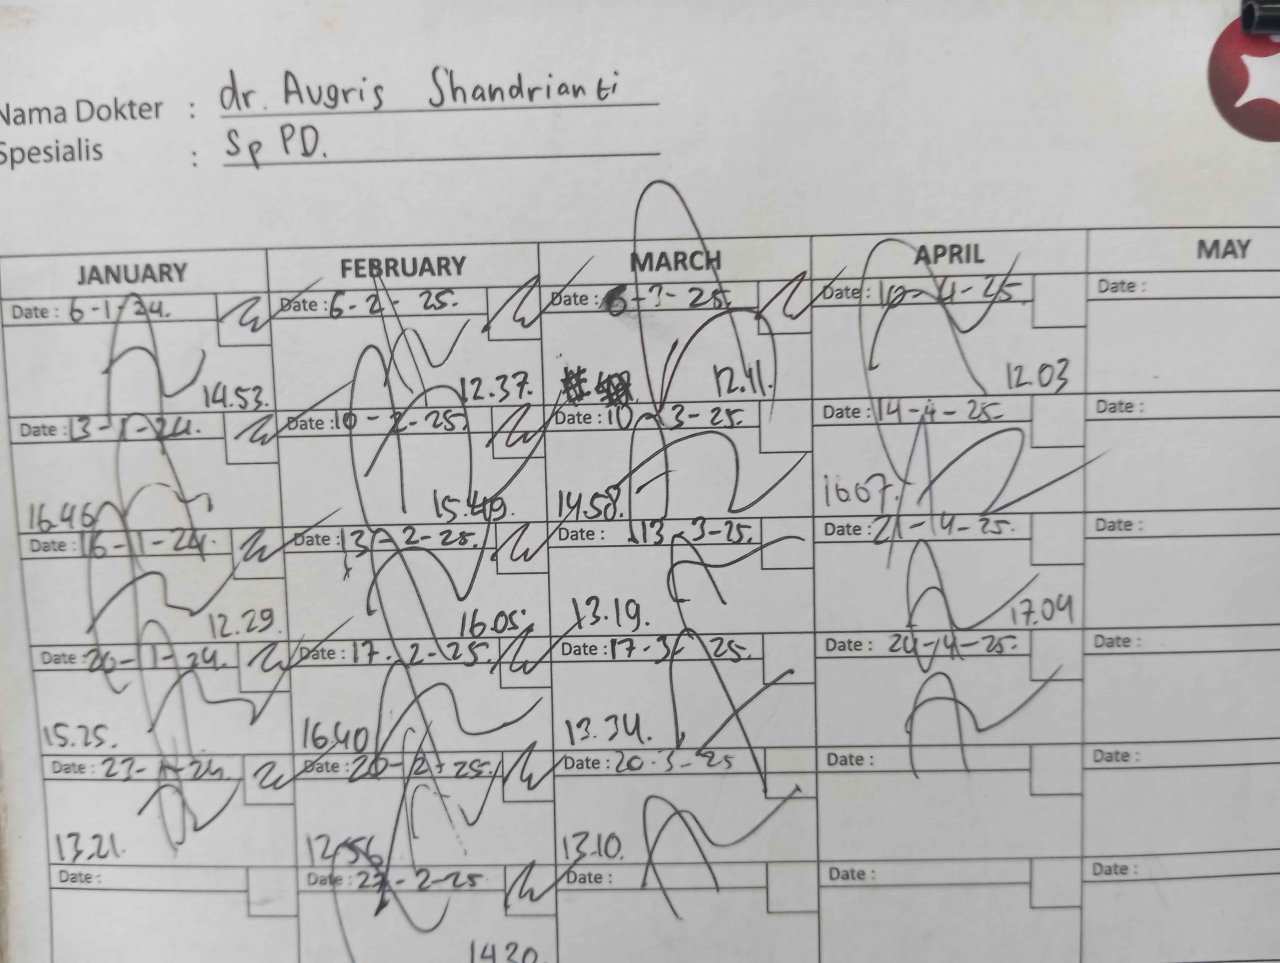 Nama Dokter : dr. Augris Shandrianti
Spesialis : Sp PD.
JANUARY FEBRUARY MARCH APRIL MAY
Date : 6-1-24. Date : 6-2-25. Date : 6-3-25. Date : 10-4-25. Date :
14.53. 12.37. 12.41. 12.03
Date : 13-1-24. Date : 10-2-25. Date : 10-3-25. Date : 14-4-25. Date :
16.46 15.49. 14.58. 16.07.
Date : 16-1-24. Date : 13-2-25. Date : 13-3-25. Date : 21-4-25. Date :
12.29. 16.05. 13.19. 17.04
Date : 20-1-24. Date : 17-2-25. Date : 17-3-25. Date : 24-4-25. Date :
15.25. 16.40 13.34.
Date : 23-1-24. Date : 20-2-25. Date : 20-3-25 Date : Date :
13.21. 12.56 13.10.
Date : Date : 27-2-25 Date : Date : Date :
14.20.